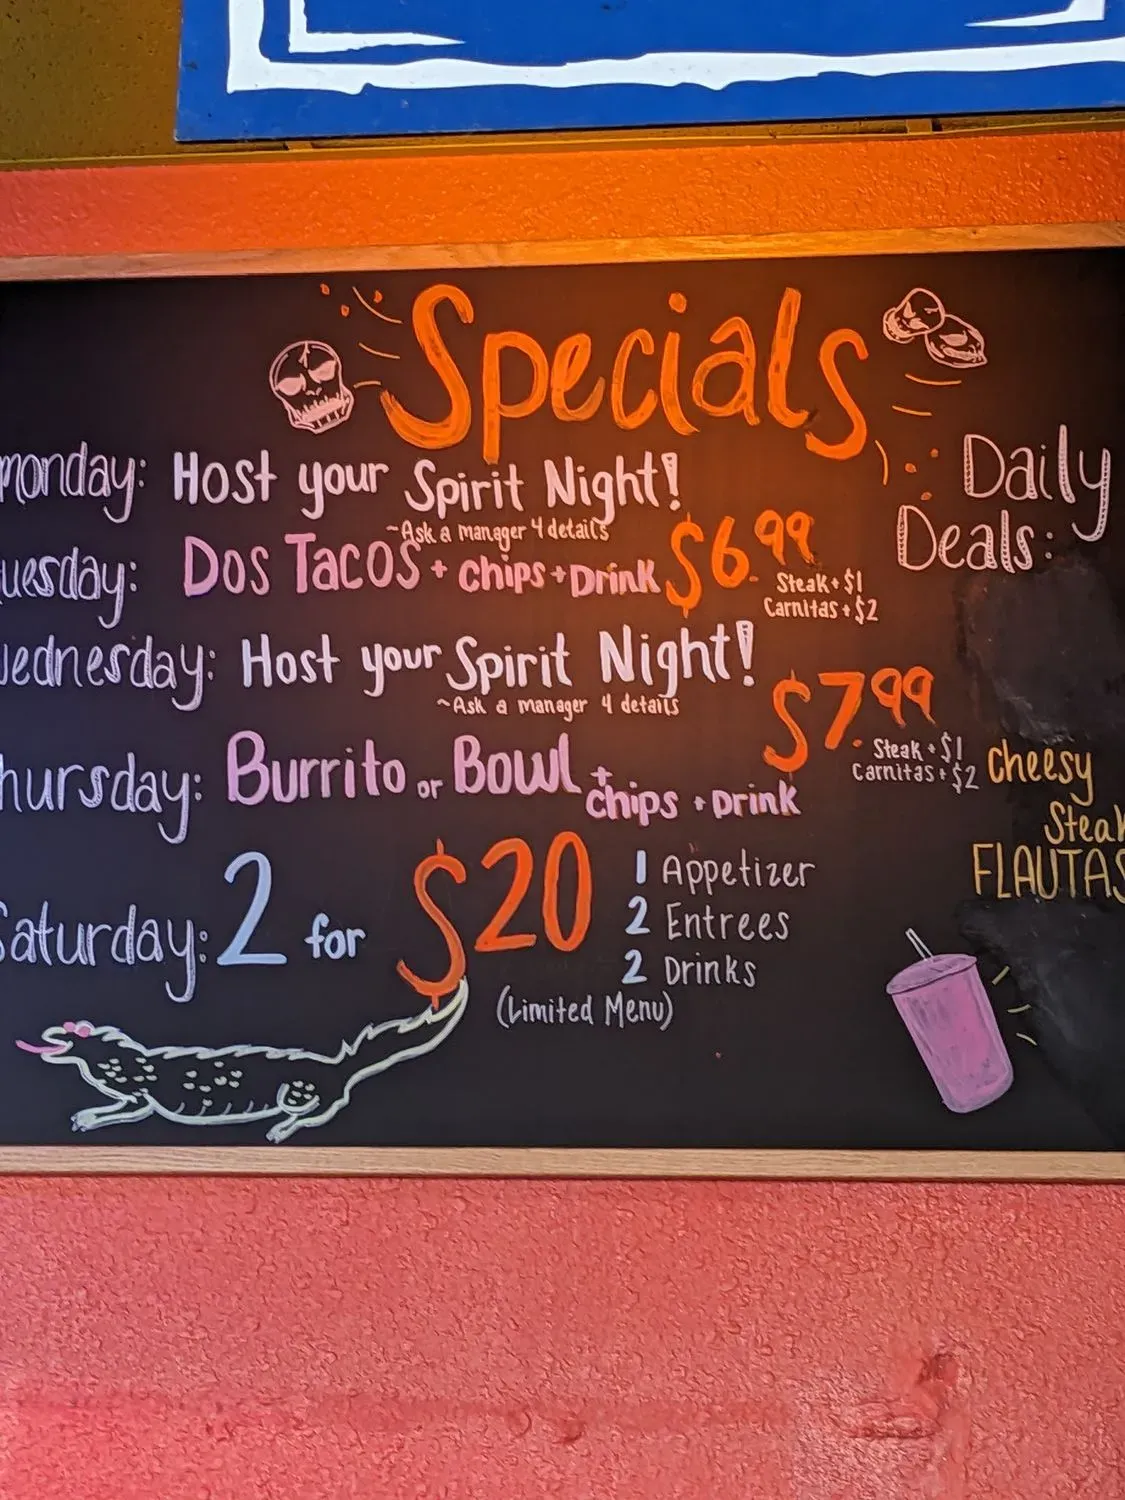 Specials
monday: Host your Spirit Night!
~Ask a manager 4 details
uesday: Dos Tacos + chips + Drink $6.99
Steak + $1
Carnitas + $2
Wednesday: Host your Spirit Night!
~Ask a manager 4 details
hursday: Burrito or Bowl + chips + Drink $7.99
Steak + $1
Carnitas + $2
Saturday: 2 for $20
1 Appetizer
2 Entrees
2 Drinks
(Limited Menu)
Daily
Deals:
cheesy
Steak
FLAUTAS